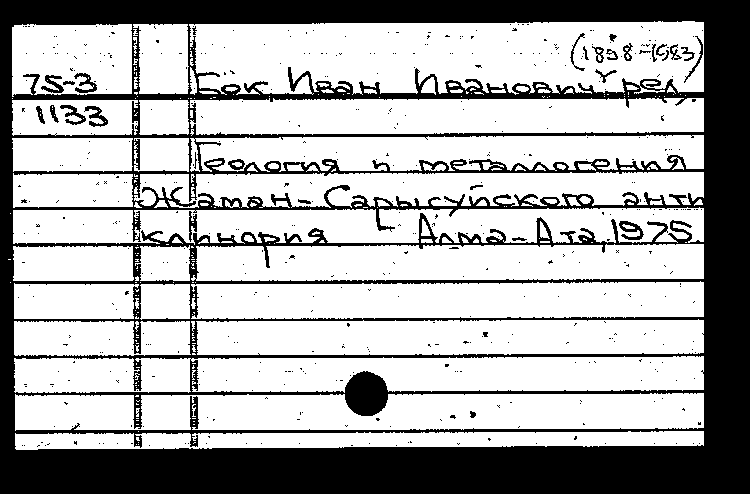 (1898-1983)
75-3 Бок, Иван Иванович, ред.
1133
Геология и металлогения
Жаман-Сарысуйского анти
клинория Алма-Ата, 1975.